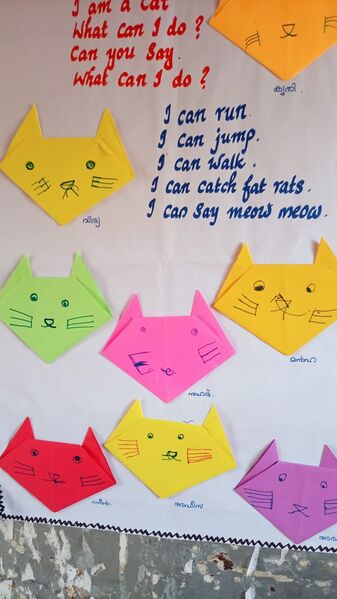 I am a cat
What can I do ?
Can you say.
What can I do ?
കൃതി
I can run.
I can jump.
I can walk.
I can catch fat rats.
I can say meow meow.
വിദ്യ